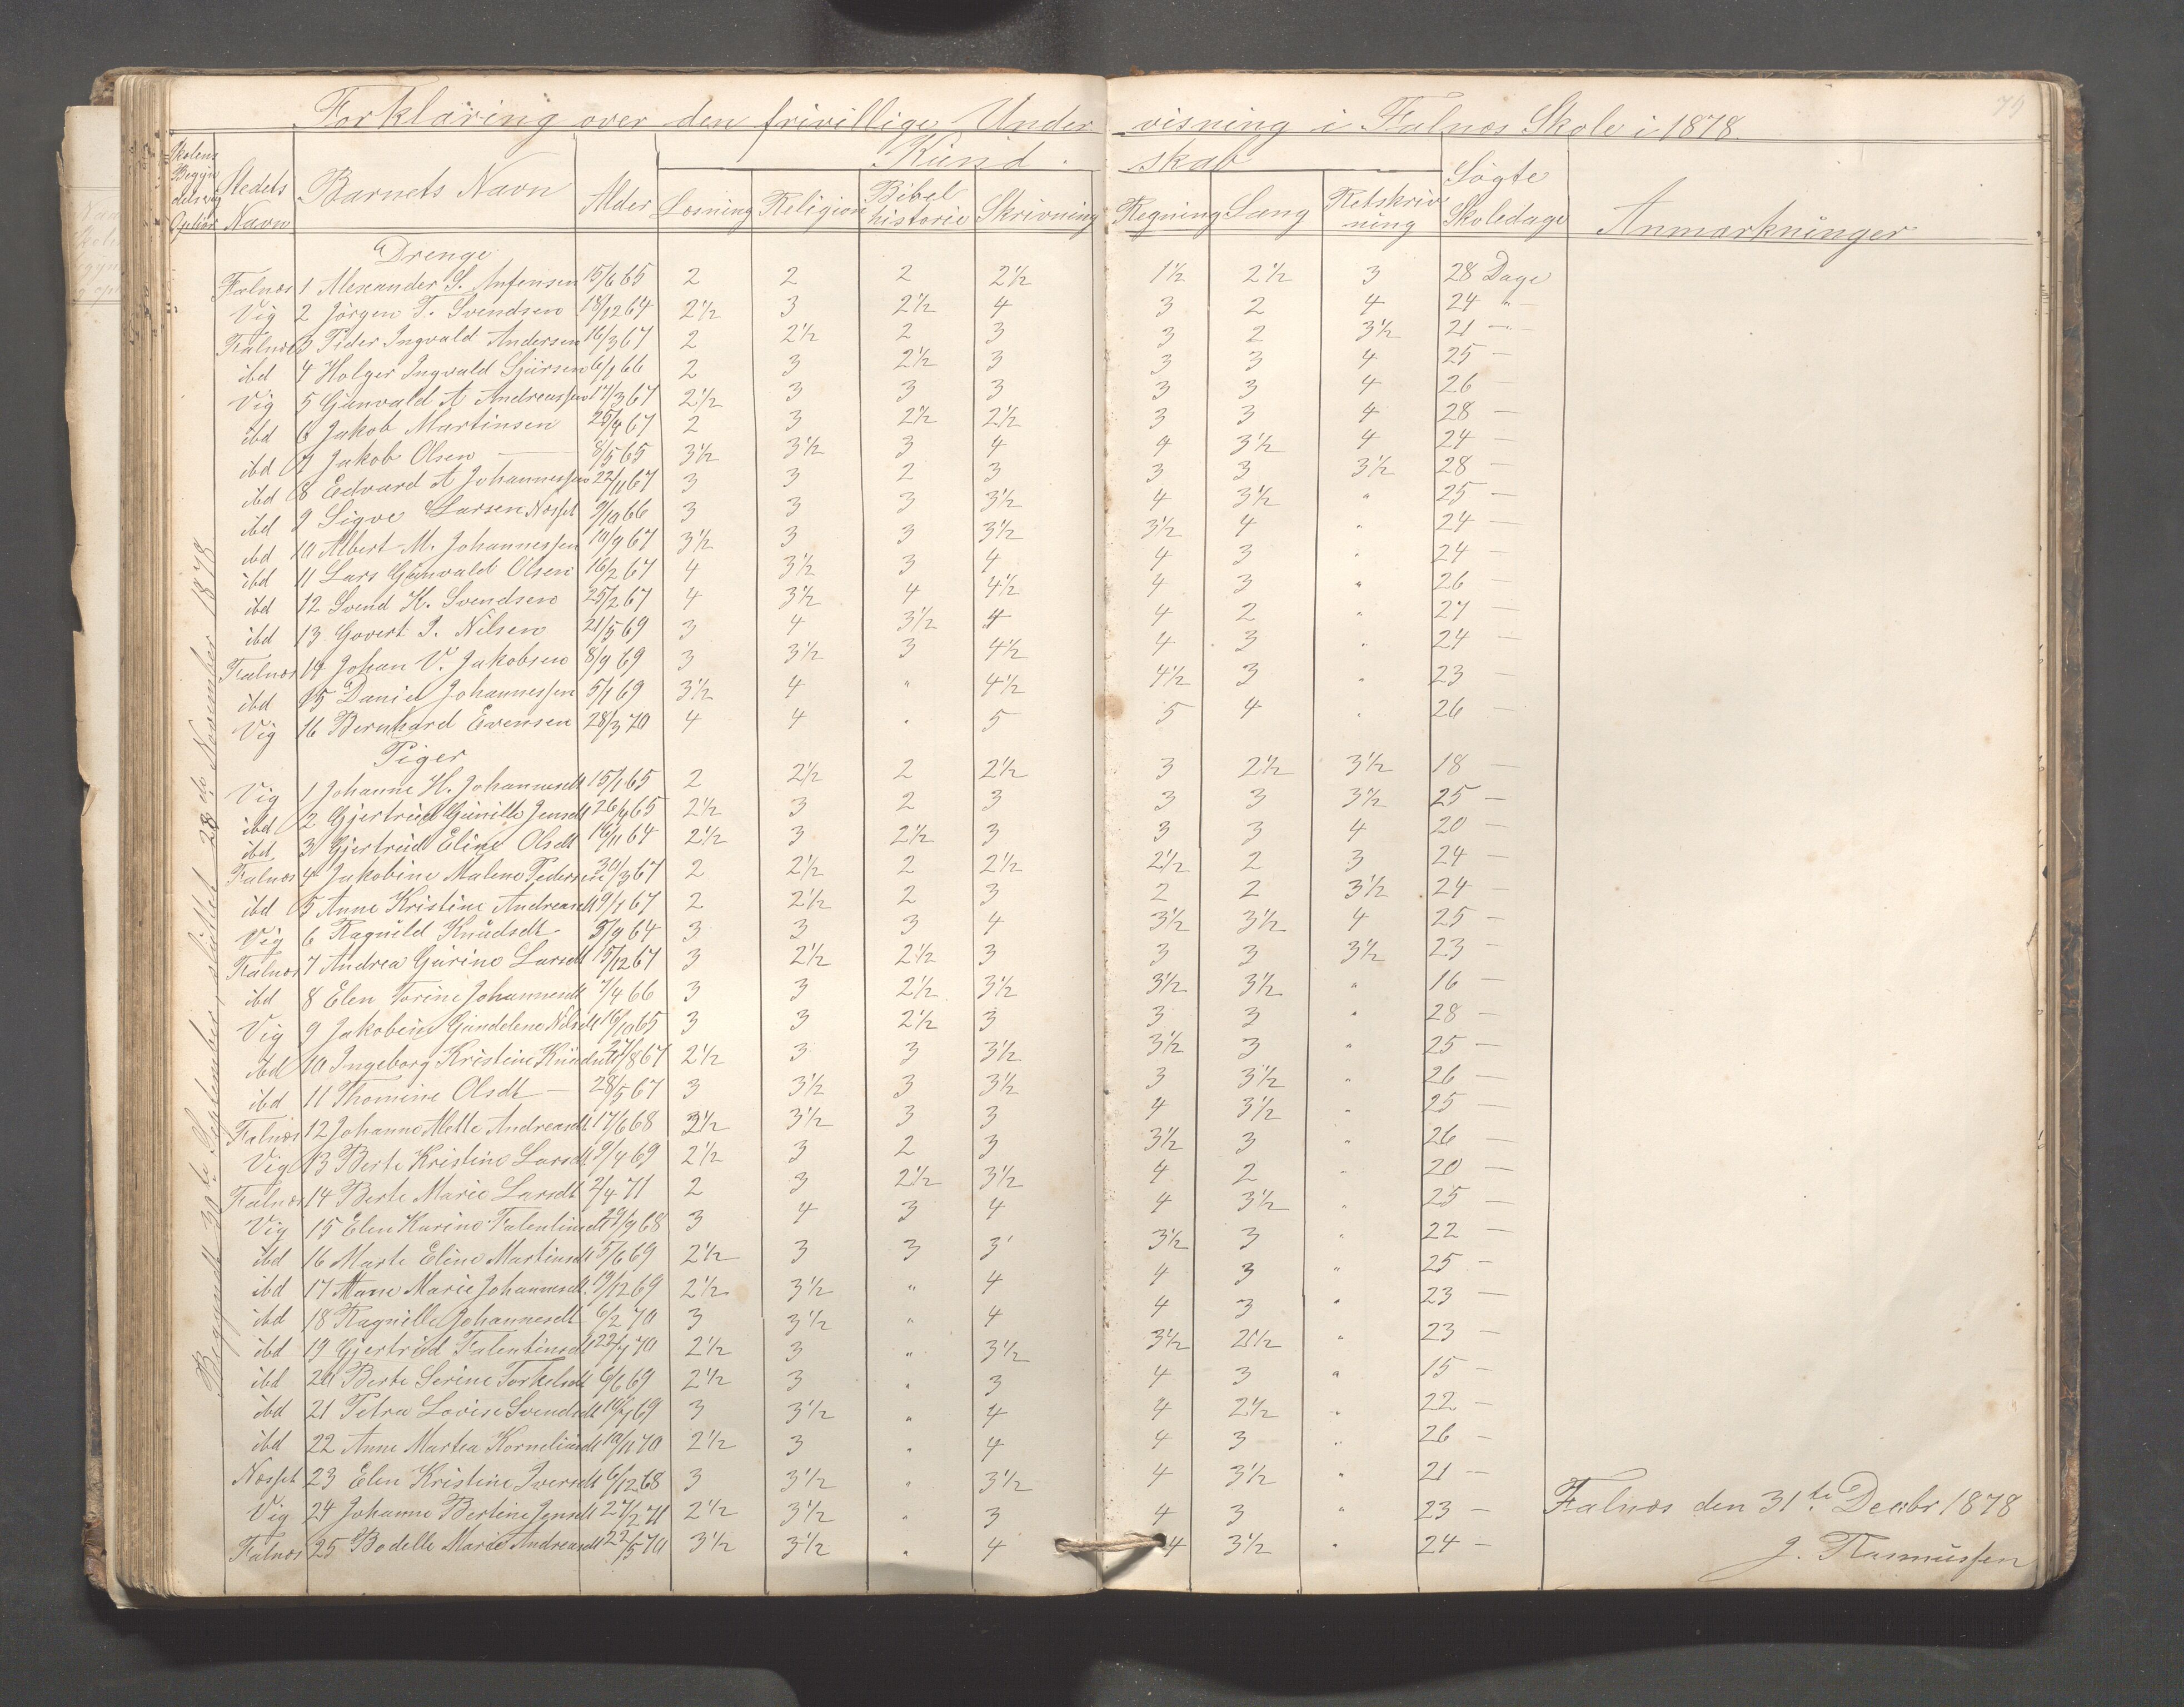 75
Forklaring over den frivillige Undervisning i Falnæs Skole i 1878.
Skolens Begyndelse og Ophør | Stedets Navn | Barnets Navn | Alder | Kundskab | Søgte Skoledage | Anmærkninger
Læsning | Religion | Bibelhistorie | Skrivning | Regning | Sang | Retskrivning
Begyndt 30te September, sluttet 28de November 1878
Drenge
Falnæs 1 Alexander S. Anfensen 15/6 65 2 2 2 2½ 1½ 2½ 3 28 Dage
Vig 2 Jörgen T. Svendsen 18/12 64 2½ 3 2½ 4 3 2 4 24 " –
Falnæs 3 Peder Ingvald Andersen 16/3 67 2 2½ 2 3 3 2 3½ 21 –
ibd 4 Holger Ingvald Sjursen 6/1 66 2 3 2½ 3 3 3 4 25 –
Vig 5 Gunvald A Andreassen 17/3 67 2½ 3 3 3 3 3 4 26 –
ibd 6 Jakob Martinsen 25/4 67 2 3 2½ 2½ 3 3 4 28 –
ibd 7 Jakob Olsen – 8/5 65 3½ 3½ 3 4 4 3½ 4 24 –
ibd 8 Edvard A Johannessen 22/11 67 3 3 2 3 3 3 3½ 28 –
ibd 9 Sigve Larsen Næset 9/10 66 3 3 3 3½ 4 3½ " 25 –
ibd 10 Albert M. Johannessen 10/9 67 3½ 3 3 3½ 3½ 4 " 24 –
ibd 11 Lars Gunvald Olsen 16/2 67 4 3½ 3 4 4 3 " 24 –
ibd 12 Svend K. Svendsen 25/2 67 4 3½ 4 4½ 4 3 " 26 –
ibd 13 Govert J. Nilsen 21/5 69 3 4 3½ 4 4 2 " 27 –
Falnæs 14 Johan V. Jakobsen 8/9 69 3 3½ 3 4½ 4 3 " 24 –
ibd 15 Daniel Johannessen 5/1 69 3½ 4 " 4½ 4½ 3 " 23 –
Vig 16 Bernhard Evensen 28/3 70 4 4 " 5 5 4 " 26 –
Piger
Vig 1 Johanne H. Johannesdt 15/1 65 2 2½ 2 2½ 3 2½ 3½ 18 –
ibd 2 Gjertrud Gunille Jensdt 26/4 65 2½ 3 2 3 3 3 3½ 25 –
ibd 3 Gjertrud Eline Olsdt 16/11 64 2½ 3 2½ 3 3 3 4 20 –
Falnæs 4 Jakobine Malene Pedersen 30/3 67 2 2½ 2 2½ 2½ 2 3 24 –
ibd 5 Anne Kristine Andreasdt 19/1 67 2 2½ 2 3 2 2 3½ 24 –
Vig 6 Ragnild Knudsdt 3/9 64 3 3 3 4 3½ 3½ 4 25 –
Falnæs 7 Andrea Gurine Larsdt 15/12 67 3 2½ 2½ 3 3 3 3½ 23 –
ibd 8 Elen Torine Johannesdt 7/4 66 3 3 2½ 3½ 3½ 3½ " 16 –
Vig 9 Jakobine Gundelene Nilsdt 16/10 65 3 3 2½ 3 3 3 " 28 –
ibd 10 Ingeborg Kristine Knudsdt 27/8 67 2½ 3 3 3½ 3½ 3 " 25 –
ibd 11 Thomine Olsdt – 28/5 67 3 3½ 3 3½ 3 3½ " 26 –
Falnæs 12 Johanne Mette Andreasdt 17/6 68 2½ 3½ 3 3 4 3½ " 25 –
Vig 13 Berte Kristine Larsdt 9/4 69 2½ 3 2 3 3½ 3 " 26 –
Falnæs 14 Berte Marie Larsdt 2/4 71 2 3 2½ 3½ 4 2 " 20 –
Vig 15 Elen Karine Falentinsdt 29/9 68 3 4 3 4 4 3½ " 25 –
ibd 16 Marte Eline Martinsdt 5/6 69 2½ 3 3 3 3½ 3 " 22 –
ibd 17 Mane Marie Johannesdt. 19/12 69 2½ 3½ " 4 4 3 " 25 –
ibd 18 Ragnille Johannesdt 6/2 70 3 3½ " 4 4 3 " 23 –
ibd 19 Gjertrud Falentinsdt 22/7 70 2½ 3 " 3½ 3½ 2½ " 23 –
ibd 20 Berte Serine Torkelsdt 6/6 69 2½ 3 " 3 4 3 " 15 –
ibd 21 Petra Lovise Svendsdt 69 3 3½ " 4 4 2½ " 22 –
ibd 22 Anne Martea Korneliusdt 10/11 70 2½ 3 " 4 4 3 " 26 –
Næset 23 Elen Kristine Iversdt 6/12 68 3 3½ " 3½ 4 3½ " 21 –
Vig 24 Johanne Bertine Jensdt 27/2 71 2½ 3½ " 3 4 3 " 23 –
Falnæs 25 Bodelle Marie Andreasdt 22/5 70 3½ 3½ " 4 4 3½ " 24 –
Falnæs den 31te Decbr 1878
J. Rasmussen